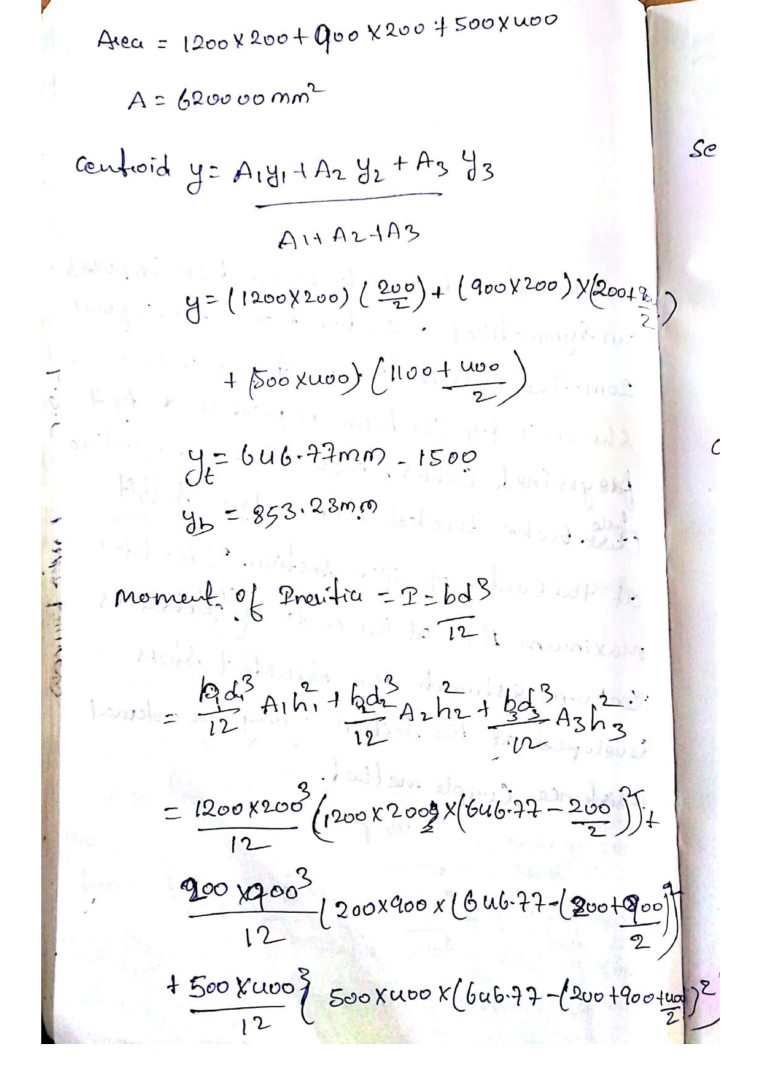 Area = 1200 X 200 + 900 X 200 + 500 X 400
A = 620000 mm²
Se
Centroid y = A₁y₁ + A₂ y₂ + A₃ y₃
A1 + A2 + A3
y = (1200X200) (200/2) + (900X200) X (200+900/2)
+ (500 X400) (1100 + 400/2)
yt = 646.77mm - 1500
yb = 853.23mm
Moment of Inertia = I = bd³/12
= b₁d₁³/12 A₁h₁² + b₂d₂³/12 A₂h₂² + b₃d₃³/12 A₃h₃²
= 1200 X 200³/12 (1200 X 200) X (646.77 - 200/2)² +
200 X 900³/12 (200 X 900 X (646.77 - (200 + 900/2)²
+ 500 X 400³/12 { 500 X 400 X (646.77 - (200 + 900 + 400/2)²